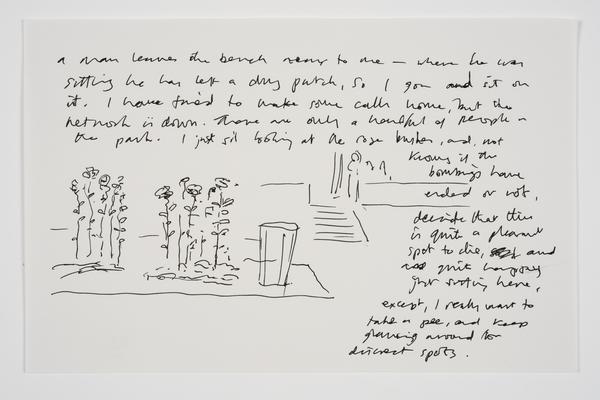 a man leaves the bench near to me – where he was
sitting he has left a dry patch, so I go and sit on
it. I have tried to make some calls home, but the
network is down. There are only a handful of people in
the park. I just sit looking at the rose bushes, and, not
knowing if the
bombings have
ended or not,
decide that this
is quite a pleasant
spot to die, and
quite happy
just sitting here,
except, I really want to
take a pee, and keep
glancing around for
discreet spots.